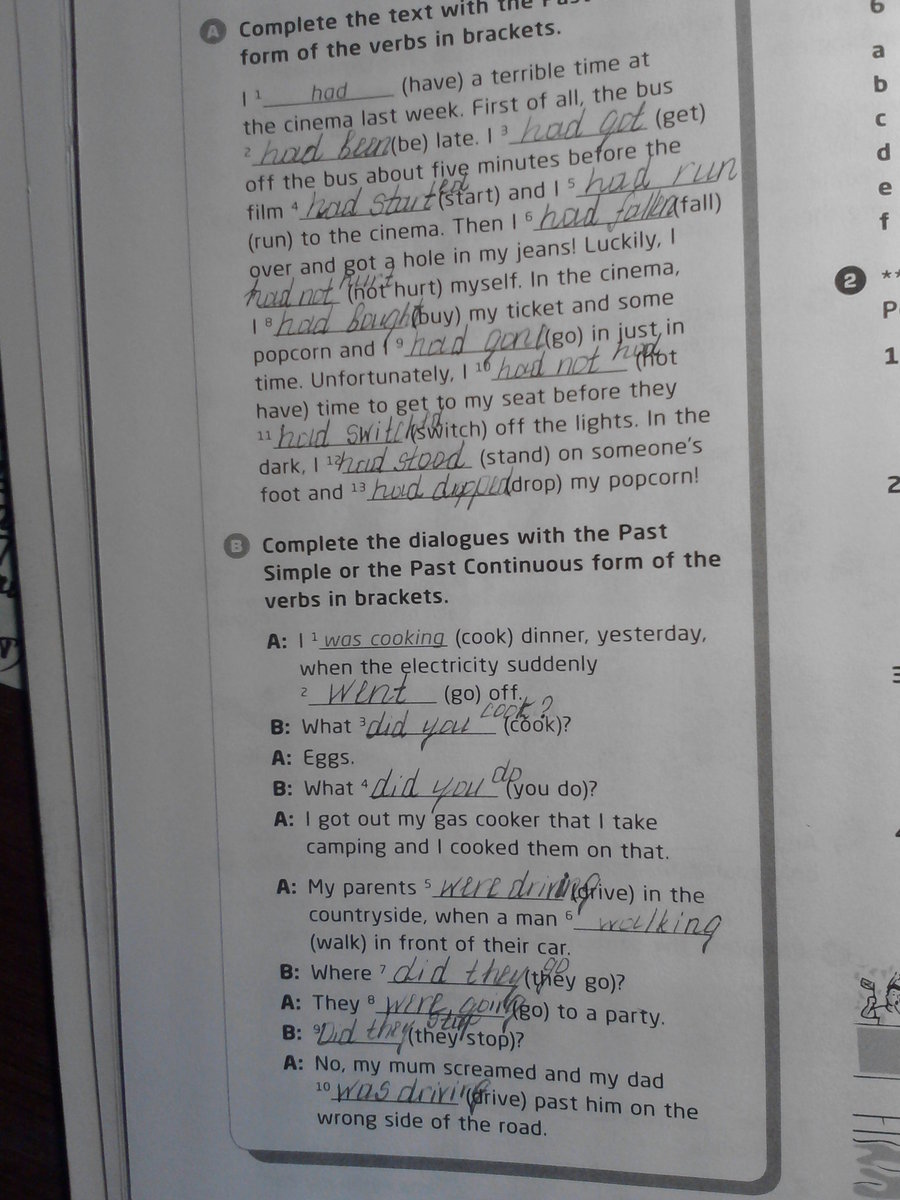 A Complete the text with the Past
form of the verbs in brackets.
I 1 had (have) a terrible time at
the cinema last week. First of all, the bus
2 had been (be) late. I 3 had got (get)
off the bus about five minutes before the
film 4 had started (start) and I 5 had run
(run) to the cinema. Then I 6 had fallen (fall)
over and got a hole in my jeans! Luckily, I
had not hurt (not hurt) myself. In the cinema,
I 8 had bought (buy) my ticket and some
popcorn and I 9 had gone (go) in just in
time. Unfortunately, I 10 had not had (not
have) time to get to my seat before they
11 had switched (switch) off the lights. In the
dark, I 12 had stood (stand) on someone's
foot and 13 had dropped (drop) my popcorn!
B Complete the dialogues with the Past
Simple or the Past Continuous form of the
verbs in brackets.
A: I 1 was cooking (cook) dinner, yesterday,
when the electricity suddenly
2 went (go) off.
B: What 3 did you cook? (cook)?
A: Eggs.
B: What 4 did you do (you do)?
A: I got out my gas cooker that I take
camping and I cooked them on that.
A: My parents 5 were driving (drive) in the
countryside, when a man 6 walking
(walk) in front of their car.
B: Where 7 did they go (they go)?
A: They 8 were going (go) to a party.
B: 9 Did they stop (they stop)?
A: No, my mum screamed and my dad
10 was driving (drive) past him on the
wrong side of the road.
6
a
b
c
d
e
f
2 **
P
1
2
3